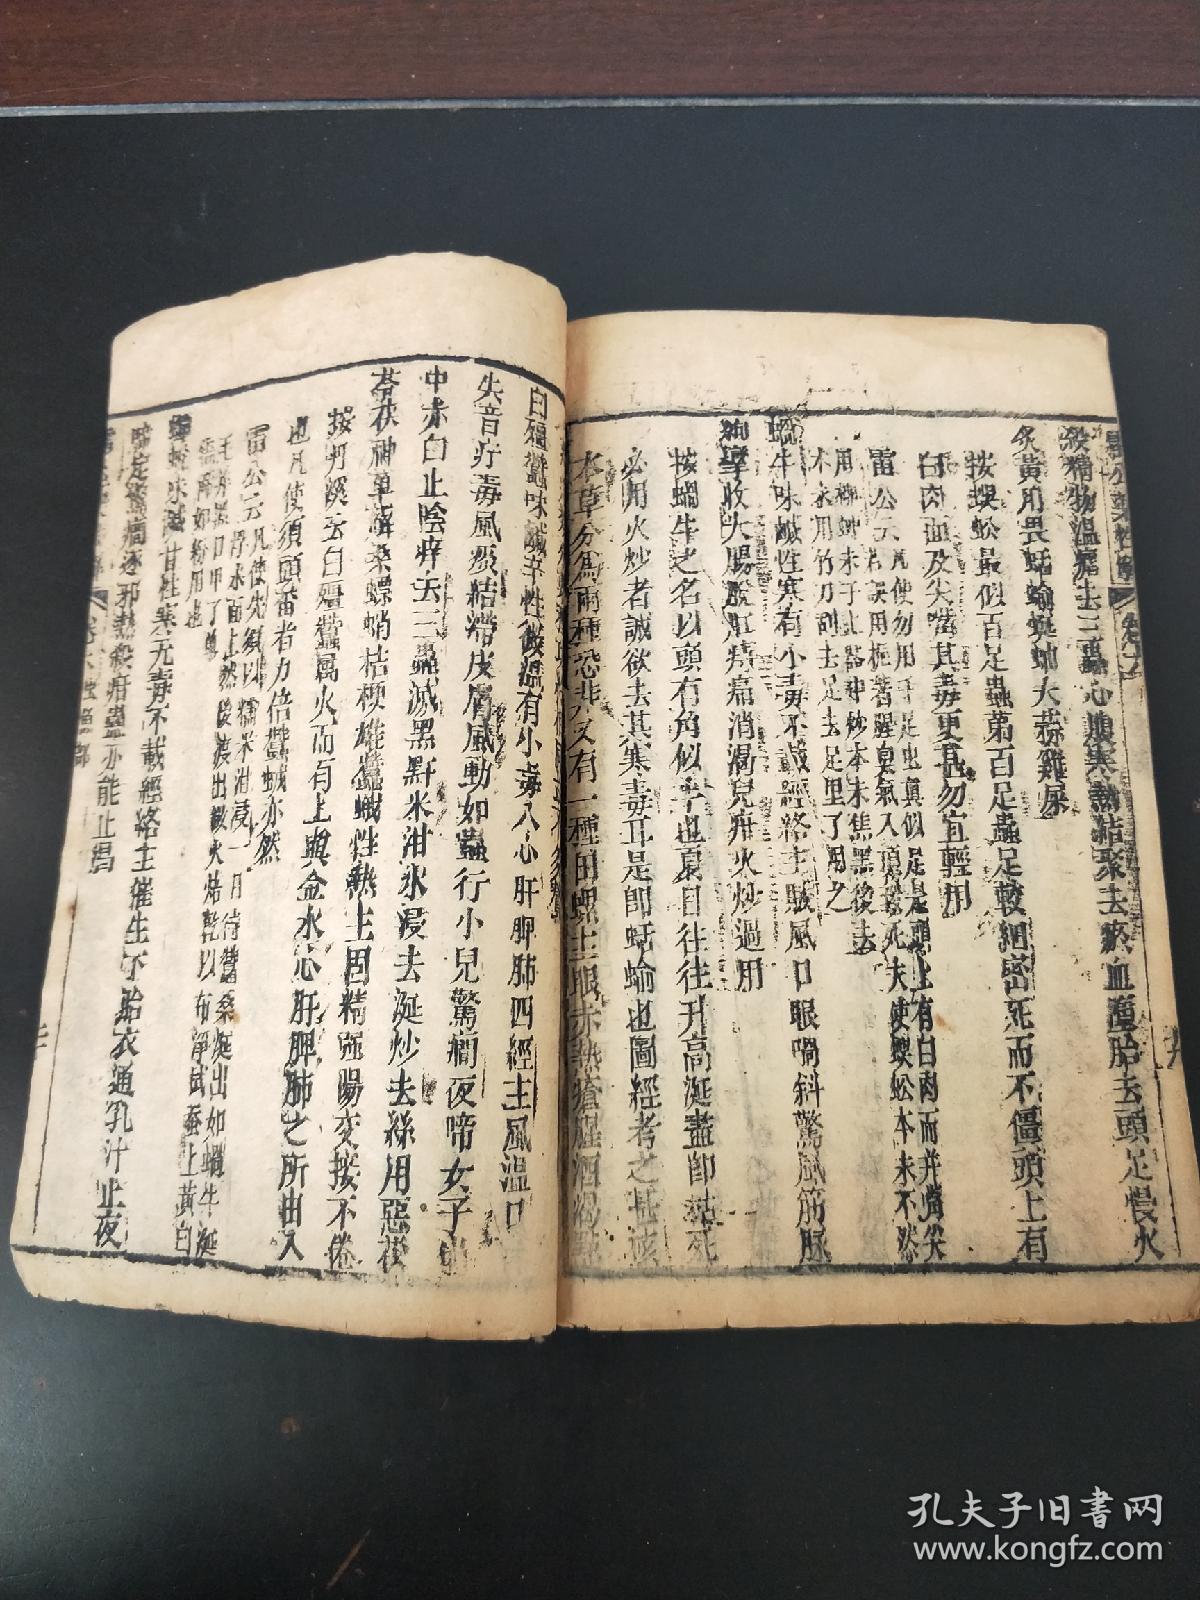 殺精物溫瘧去三蟲心腹寒熱結聚去瘀血墮胎去頭足慢火
炙黃用畏蛞蝓蜒蚰大蒜雞屎
按蜈蚣最似百足蟲第百足蟲足較細密死而不僵頭上有
白肉面及尖嘴其毒更甚勿宜輕用
雷公云凡使勿用千足虫真似是頭上有白肉而并嘴尖
若誤用
把著腥臭氣入頂致死夫使蜈蚣本末不然
用柳蚛末于土器中炒本末焦黑後去
木末用竹刀刮去足去足里了用之
蝸牛味鹹性寒有小毒不載經絡主賊風口眼喎斜驚風筋脉
拘攣收大腸脫肛痔痛消渴兒疳火炒過用
按蝸牛之名以頭有角似牛也夏日往往升高涎盡即枯死
必用火炒者誠欲去其寒毒耳是即蛞蝓也圖經考之甚該
本草分為兩種恐非又有一種田螺主眼赤熱瘡醒酒渴
白殭蠶味鹹辛性微溫有小毒入心肝脾肺四經主風溫口
失音疔毒風痰結滯皮膚風動如蟲行小兒驚癎夜啼女子崩
中赤白止陰痒去三蟲滅黑䵟米泔水浸去涎炒去絲用惡桜
茯苓茯神萆薢桑螵蛸桔梗雄蠶蛾性熱主固精強陽交接不倦
按丹溪云白殭蠶屬火而有土與金水心肝脾肺之所由入
也凡使須頭番者力倍蠶蛾亦然
雷公云凡使先須以糯米泔浸一日待蠶桑涎出如蝸牛涎
浮水面上然後漉出微火焙乾以布淨拭蚕上黃白
毛并黑口甲了單
搗篩如粉用也
蟬蛻味鹹甘性寒无毒不載經絡主催生下胎衣通乳汁止夜
啼定驚癎逐邪熱殺疳蟲亦能止渴
孔夫子旧书网
www.kongfz.com